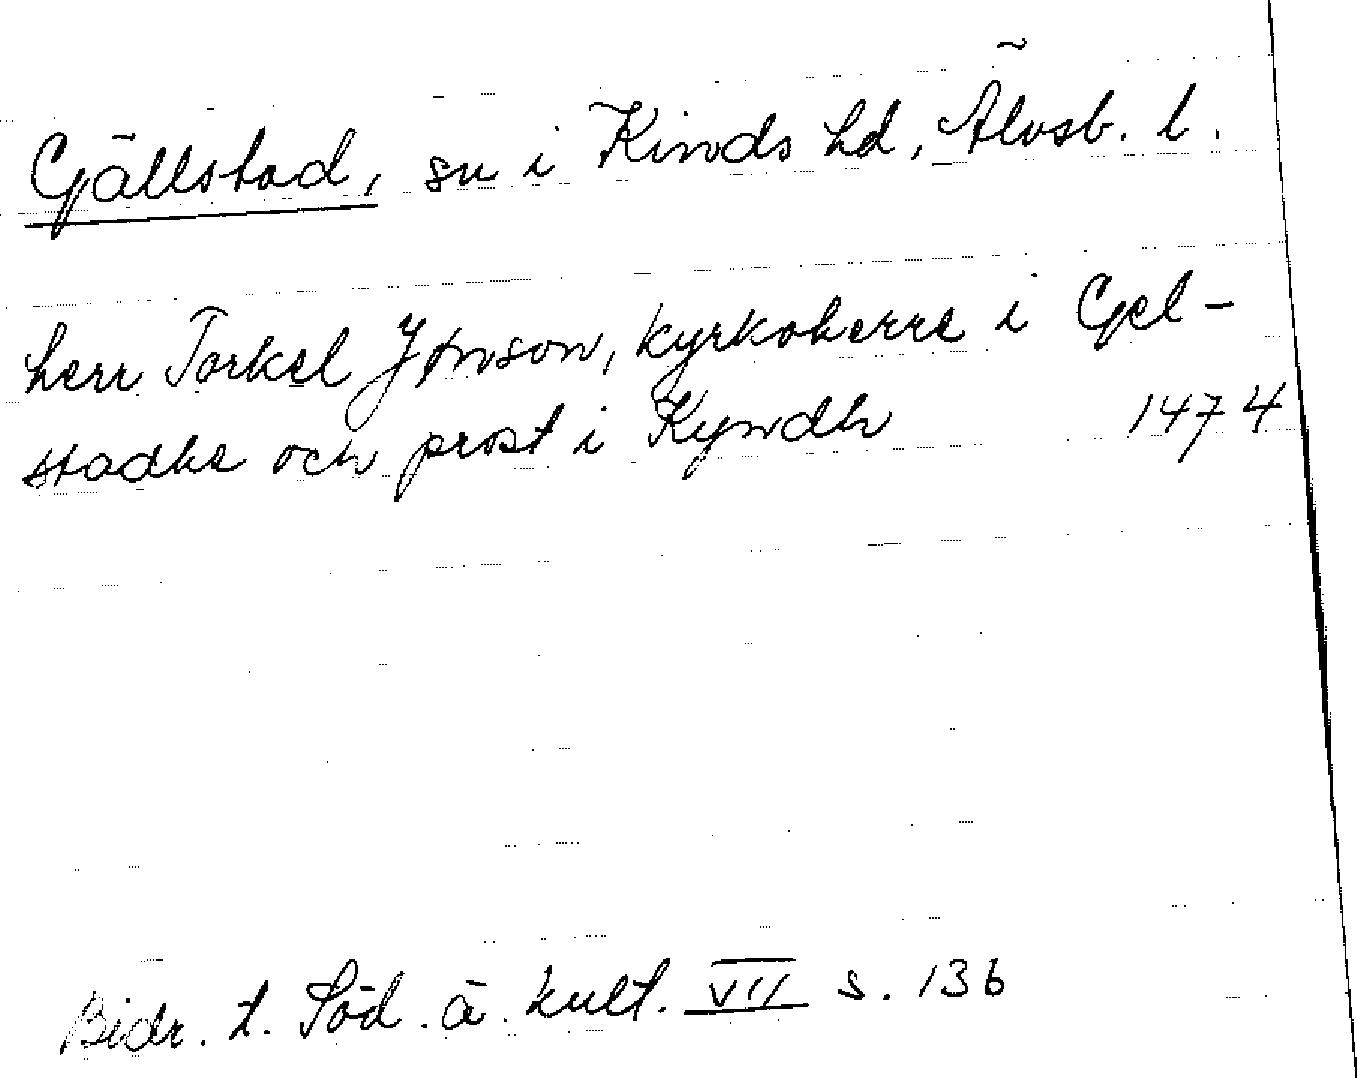 Gällstad, sn i Kinds hd, Älvsb. l.
herr Torkel Jønson, kyrkoherre i Gel-
stadhe och prost i Kyndh 1474
Bidr. t. Söd. ä. kult. VII s. 136